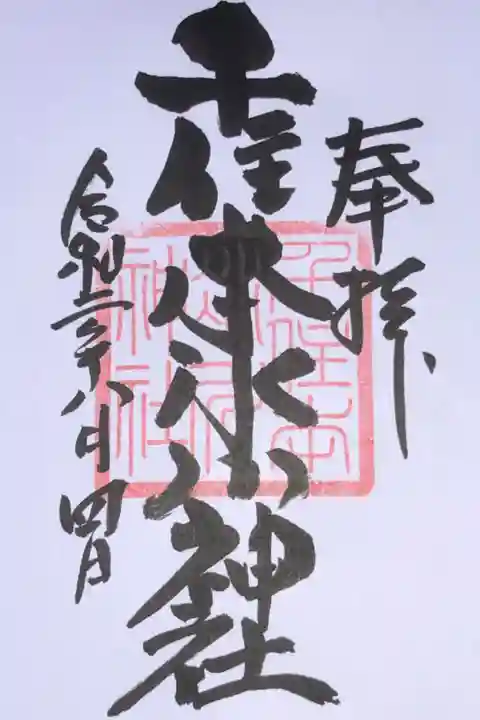 奉拝
千住本氷川神社
令和三年八月四日
千住本
氷川
神社